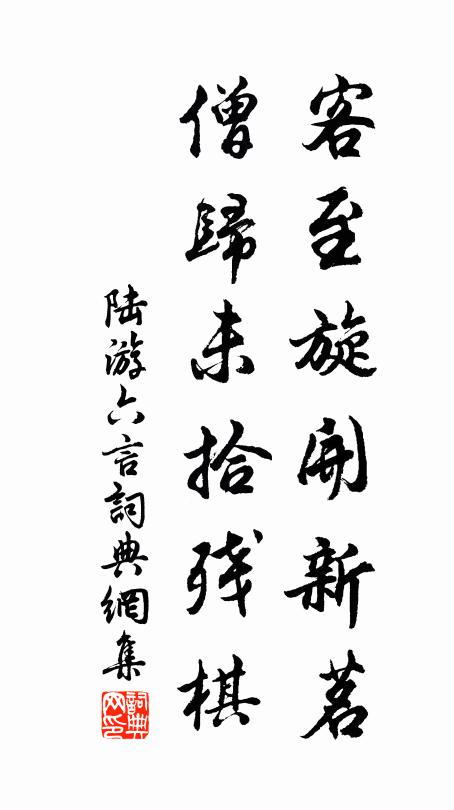 客至旋開新茗
僧歸未拾残棋
陆游六言詞典網集
詞典网印